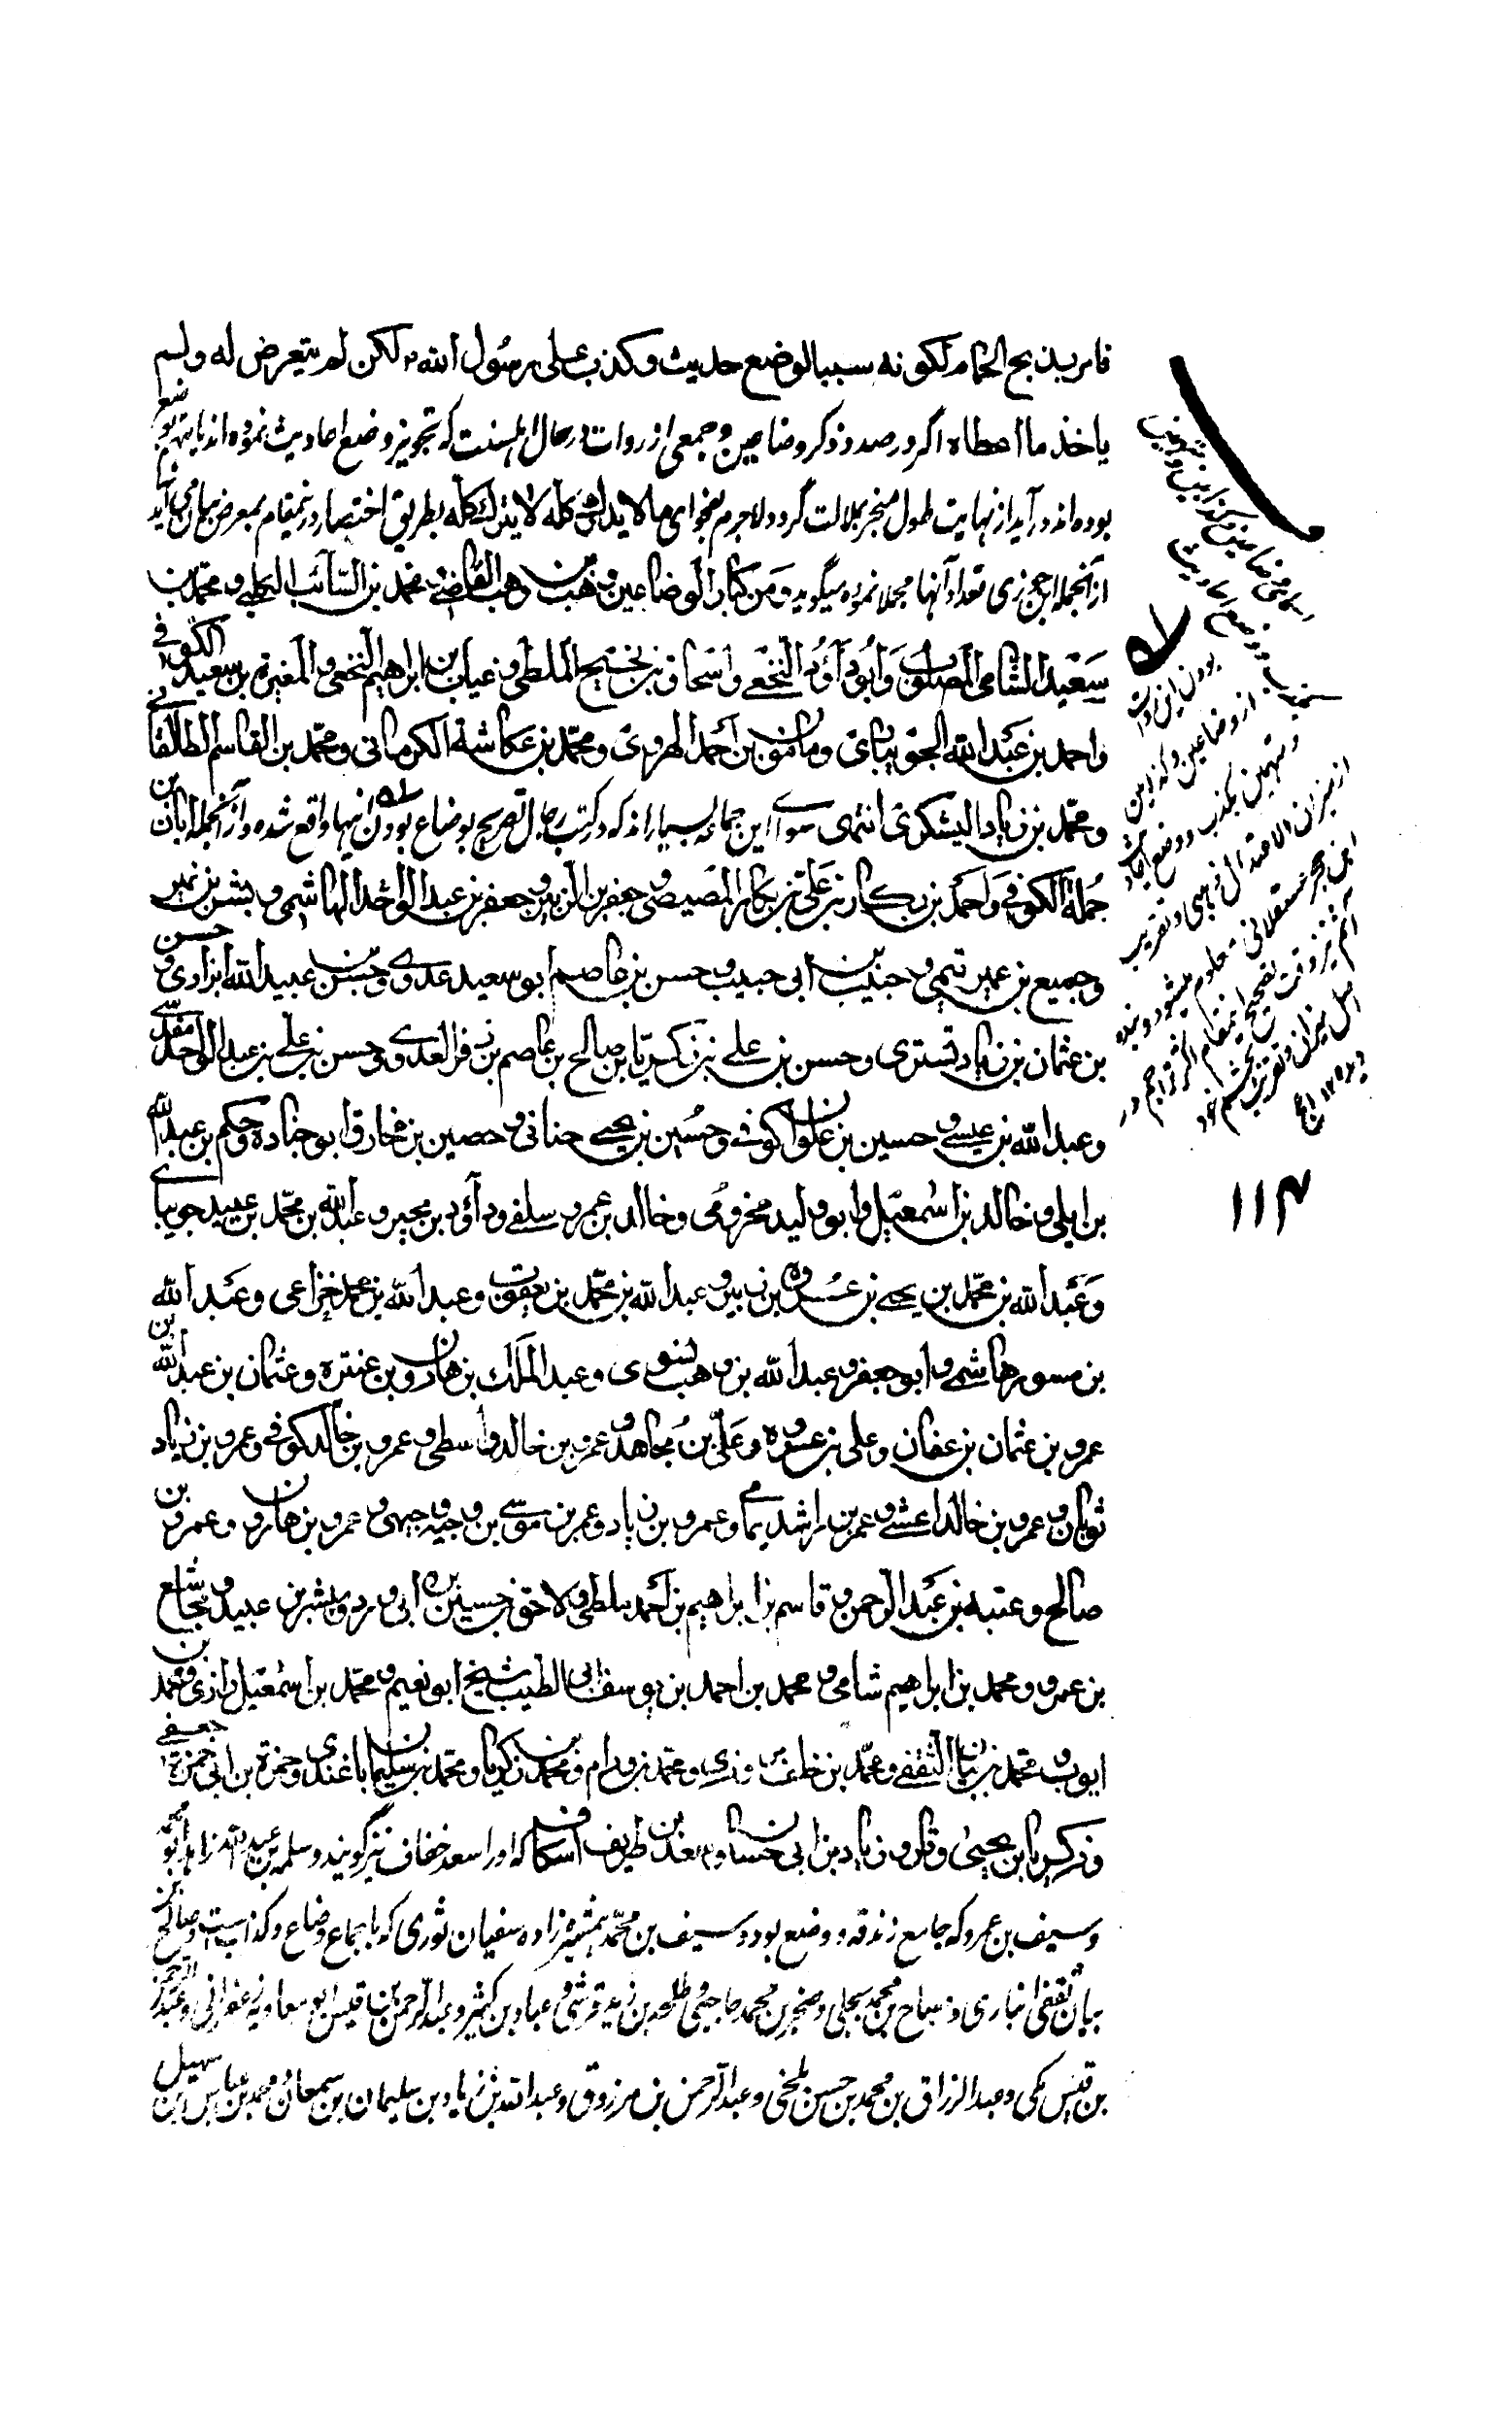 فامر بذبح الحمام لكونه سببا لوضع حديث وكذب على رسول الله ولكن لم يتعرض له ولم
ياخذ ما اعطاه اگر در صدد ذكر وضاعين و جمعى از روات و رجال اهلسنت كه تجويز وضع احاديث نموده اند يا متهم بوضع
بوده اند در آيد از نهايت طول منجر بملالت گردد لاجرم بفحواى ما لا يدرك كله لا يترك كله بطريق اختصار درينمقام بمعرض بيان مى آيد
از آنجمله ابن جزرى تعداد آنها مجملا نموده ميگويد و من كبار الوضاعين وهب بن وهب القاضى و محمد بن السائب الكلبى و محمد بن
سعيد الشامى المصلوب و ابو داؤد النخعى و اسحاق بن نجيح الملطى و غياث بن ابراهيم النخعى و المغيرة بن سعيد الكوفى
و احمد بن عبد الله الجويبارى و مامون بن احمد الهروى و محمد بن عكاشة الكرمانى و محمد بن القاسم الطالقانى
و محمد بن زياد اليشكرى انتهى سواى اين جماعه بسيار اند كه در كتب رجال تصريح بوضاع بودن اينها واقع شده و از آنجمله ابان بن
جملة الكوفى و احمد بن بكار بن على بن بكار المصيصى و جعفر بن الزبير و جعفر بن عبد الواحد الهاشمى و بشر بن نمير
و جميع بن عمير تيمى و حبيب بن ابى حبيب و حسن بن عاصم ابو سعيد عدوى و حسن بن عبيد الله ابزارى و حسن
بن عثمان بن زياد تسترى و حسن بن على بن زكريا بن صالح بن عاصم بن زفر العدوى و حسن بن على بن عبد الواحد مقدسى
و عبد الله بن عيسى و حسين بن علوان كوفى و حسين بن يحيى حنانى و حصين بن مخارق ابو جناده و حكم بن عبد الله
بن ايلى و خالد بن اسمعيل ابو وليد مخزومى و خالد بن عمرو سلفى و داؤد بن محبر و عبد الله بن محمد بن عبيد جويبارى
و عبد الله بن محمد بن يحيى بن عروه بن زبير و عبد الله بن محمد بن يعقوب و عبد الله بن محمد خزاعى و عبد الله
بن مسور هاشمى ابو جعفر و عبد الله بن وهب نسوى و عبد الملك بن هارون بن عنتره و عثمان بن عبد الله بن
عمرو بن عثمان بن عفان و على بن عروه و على بن مجاهد و عمرو بن خالد واسطى و عمرو بن خالد كوفى و عمرو بن زياد
ثوبانى و عمرو بن خالد اعشى و عمر بن راشد يمامى و عمرو بن زياد و عمر بن موسى بن وجيه وجيهى و عمرو بن هارون و عمر بن
صالح و عتبه بن عبد الرحمن و قاسم بن ابراهيم بن احمد ملطى و لاحق بن حسين بن ابى ورد و مبشر بن عبيد و مجاشع
بن عمرو و محمد بن ابراهيم شامى و محمد بن احمد بن يوسف ابى الطيب شيخ ابو نعيم و محمد بن اسمعيل رازى و محمد بن
ايوب و محمد بن بيان الثقفى و محمد بن خلف مروزى و محمد بن ورام و محمد بن زكريا و محمد بن سليمان باغندى و حمزة بن ابى حمزة جعفى
و زكريا بن يحيى وقار و زياد بن ابى حسان و سعد بن طريف اسكاف كه او را سعد خفاف نيز گويند و سلمه بن عبيد الله زاهد ابو محمد
و سيف بن عمرو كه جامع زندقه و وضع بود و سيف بن محمد همشيره زاده سفيان ثورى كه باجماع وضاع و كذاب است و صالح بن
بيان ثقفى انبارى و صباح بن محمد بجلى و صخر بن محمد حاجبى و طلحه بن زيد قرشى و عباد بن كثير و عبد الرحمن بن قيس ابو معاويه زعفرانى و عبد الرحمن
بن قيس مكى و عبد الرزاق بن محمد بن حسن بلخى و عبد الرحمن بن مرزوق و عبد الله بن زياد بن سليمان بن سمعان و محمد بن عباس بن سهيل
بودن اين روات
از وضاعين و كذابين
و متهمين بكذب و وضع احاديث
از ميزان الاعتدال ذهبى و تقريب
ابن حجر عسقلانى معلوم ميشود و بنده
اصل ميزان و تقريب بچشم خود
١١٣